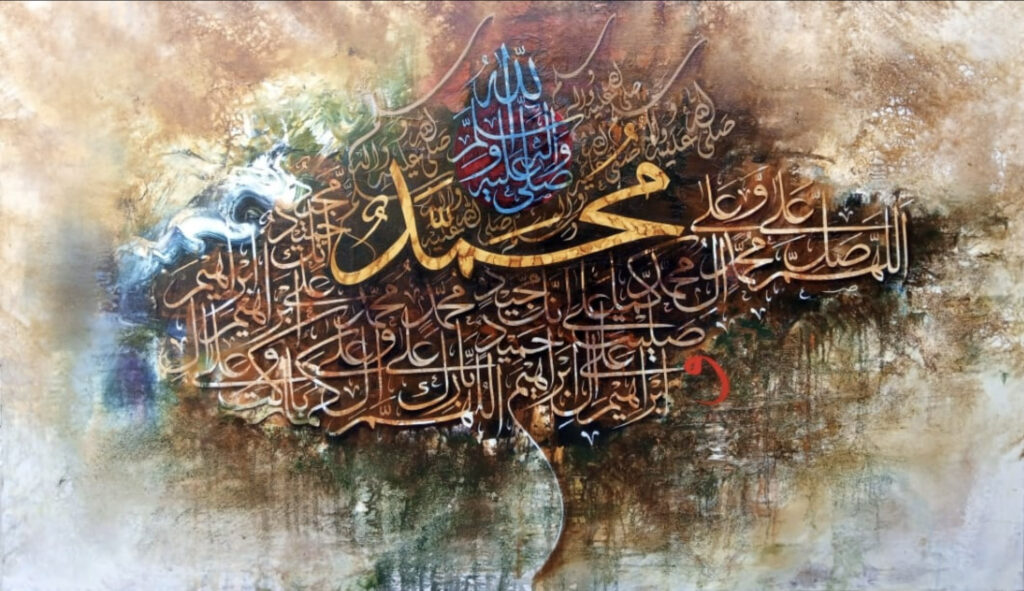 صلى الله عليه وآله وسلم
محمد
اللهم صل على محمد وعلى آل محمد كما صليت على إبراهيم وعلى آل إبراهيم إنك حميد مجيد
اللهم بارك على محمد وعلى آل محمد كما باركت على إبراهيم وعلى آل إبراهيم إنك حميد مجيد